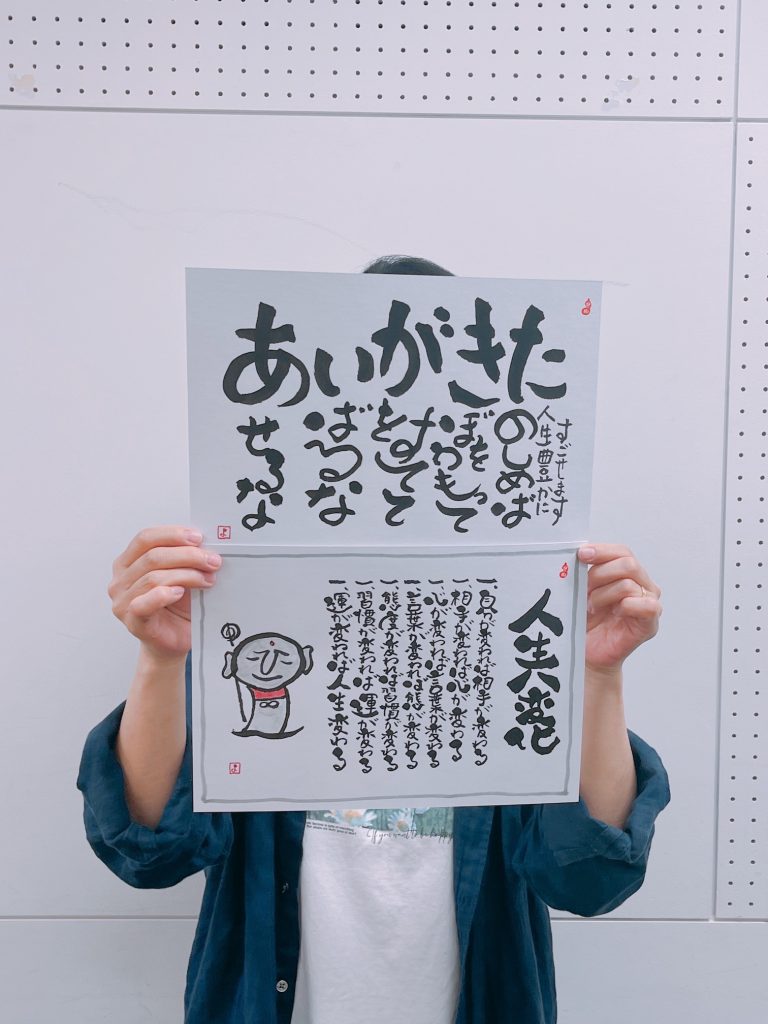 あせるな
いばるな
がをすてて
たのしめば
人生豊かに
すごせます
人生変化
一、自分が変われば相手が変わる
一、相手が変われば心が変わる
一、心が変われば言葉が変わる
一、言葉が変われば態度が変わる
一、態度が変われば習慣が変わる
一、習慣が変われば運が変わる
一、運が変われば人生変わる
If you want to be happy